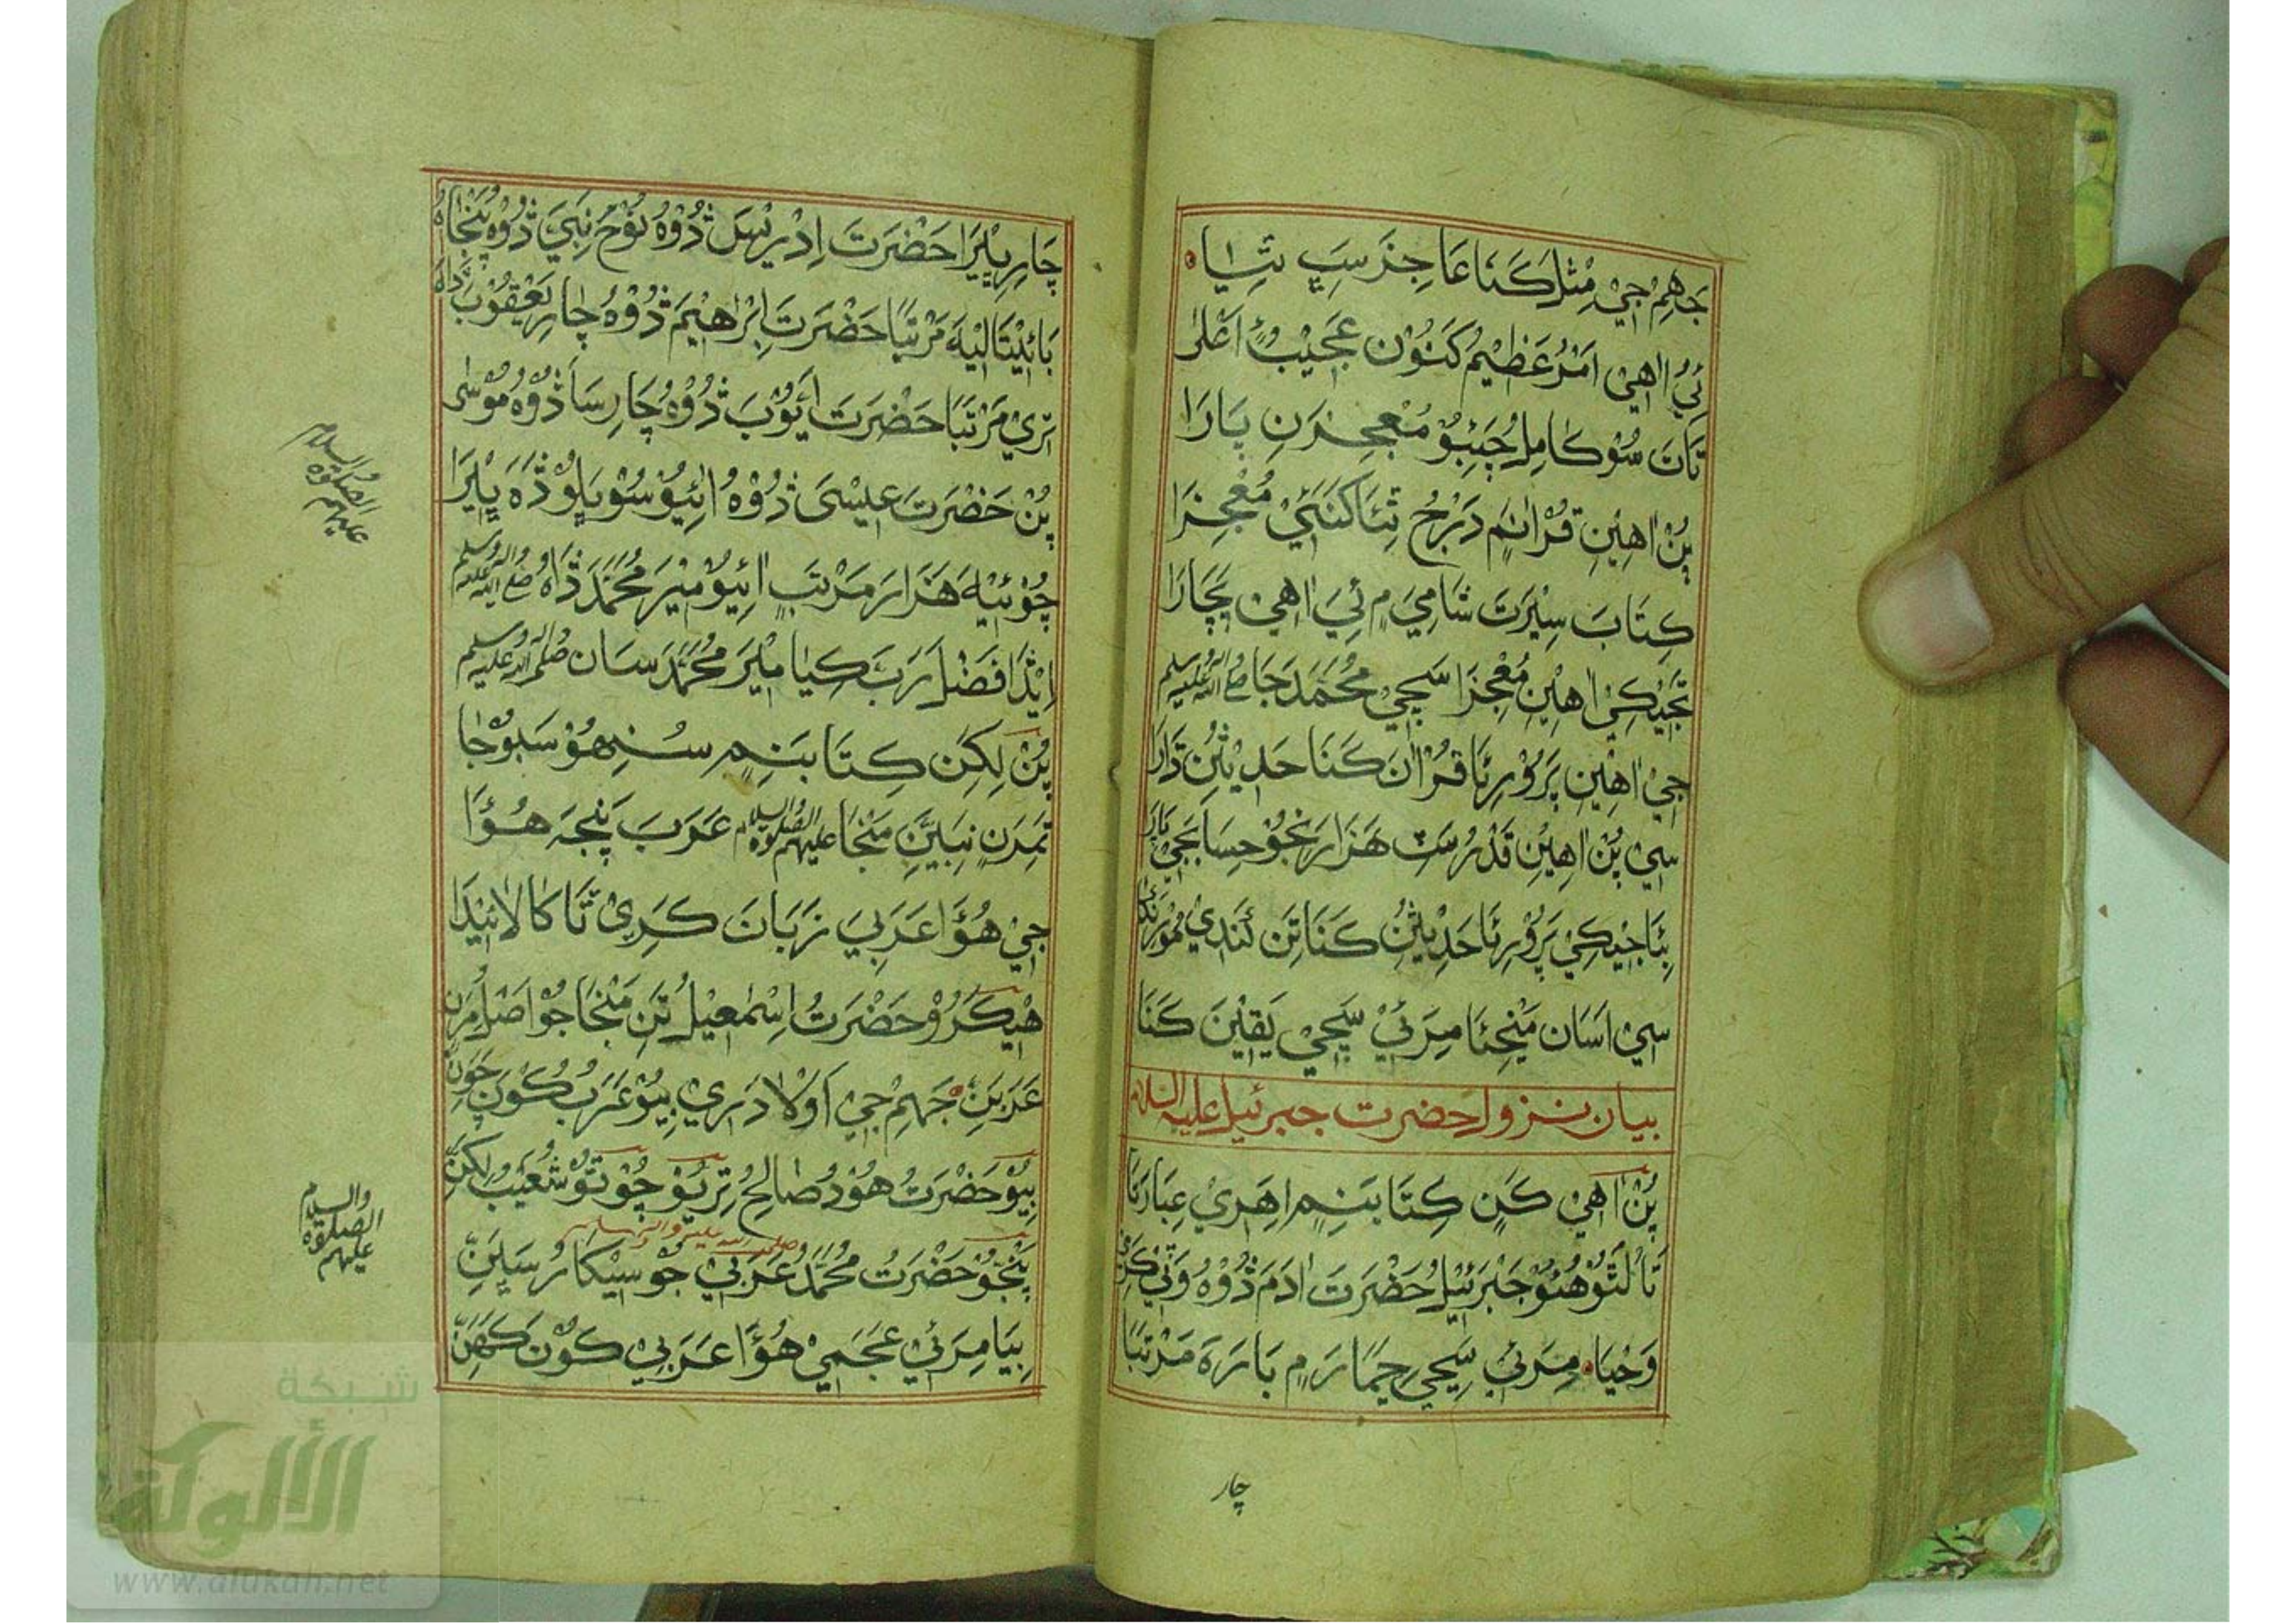 جَهِمْ جِيْ مِثْلَ كَنَا عَاجِزَ سَڀِ ٿِيَا
ئِيُ اهِيْ اَمْرُ عَظِيْمُ كَنُوْن عَجِيْبُ اَعْلٰى
تَانَ سُوْ كَامِلُ چَئِبُوْ مُعْجِزَنِ پَارَا
پُنْ اهِيْنِ قُرْانَمِ دَرْجُ ٿِئَا كَنَئِيْ مُعْجِزَا
كِتَابَ سِيْرَتَ شَامِيَ ۾ ئِيَ اهِيْ پَچَارَا
تَجِيْكِيْ اهِيْنِ مُعْجِزَا سَچِيْ مُحَمَّدَ جَا صلى الله عليه وسلم
جِيْ اهِيْنِ پَرُوْرِئَا قُرْانَ كَنَا حَدِيْثِنْ دَارَا
سِيْ پُنْ اهِيْنِ قَدْرُ سَٽِ هَزَارَنِجُوْ حِسَابَجِيْ پَارَا
بِئَا جِيْكِيْ پَرُوْرِئَا حَدِيْثِنُ كَنَا تِن لَنْدِيْ
سِيْ اَسَان مَنْجِئَا مِرَئِيْ سَچِيْ يَقِيْنَ كَنَا
بيان نزول حضرت جبرئيل عليه السلام
پُنْ اهِيْ كَنِ كِتَابَنِمِ اهَڙِيْ عِبَارَتَا
تَا لَٿُوْ هُئوْ جَبْرَئِيْلُ حَضْرَتَ ادَمَ ڏُوْهُ وَٺِيْ كَرِيْ
وَحْيَا مِرَئِيْ سِڃِيْ ڄَمَارَ ۾ بَارَهَ مَرْتَبَا
چار
چَارِ پِيْرَا حَضْرَتَ اِدْرِيْسَ ڏُوْهُ نُوْحَ نِبَيَ ڏُوْهُ پَنْجَاهُ
بَائِيْتَالِيْهَ مَرْتَبَا حَضْرَتَ اِبْرَاهِيْمَ ڏُوْهُ چَارِ يَعْقُوْبَ ڏَاهُ
ٽرِيْ مَرْتَبَا حَضْرَتَ اَيُّوْبَ ڏُوْهُ چَارِ سَا ڏُوْهُ مُوْسٰى
پُنْ حَضْرَتَ عِيْسٰىَ ڏُوْهُ ائِيُوْ سُوْ يَاوْ ڏَهَ پِيْرَا
چُوْئِيْهَ هَزَارَ مَرْتَبَ ائِيُوْ مِيْرَ مُحَمَّدَ ڏَاهُ صلى الله عليه واله وسلم
اِيْڏَا فَضْلَ رَبَّ كِيَا مِيْرَ مُحَمَّدَ سَان صلى الله عليه وآله وسلم
پُنْ لِكِن كِتَابَنِمِ سُنِهُوْ سَبُوْجَا
تَمِرَنِ نِبِيَّنِ مَنْجَا عليهم الصلوة والسلام عَرَبَ پَنْجَه هُوْا
جِيْ هُوْا عَرَبِيَ زَبَانَ كَرِيْ تَا كَالَائِيْدَا
هِيْكَڙُوْ حَضْرَتُ اِسْمٰعِيْلُ تَنِ مَنْجَا جُوْ اَصْلُ
عَرَبَنِ جَهِمْ جِيْ اَوْلَادَ ٽرِيْ بِيُوْ عَرَبُ كُوْنَ چَوَنِ
بِيُوْ حَضْرَتُ هُوْدُ صَالِحُ ٽرِيُوْ چُوْتُوْ شُعَيْبُ لِكِنِّ
پَنْجُوْ حَضْرَتُ مُحَمَّدُ عَرَبِيْ جُوْ سِيْكَارُ رُسِيَلَنِ
بِيَا مِرَئِيْ عَجَمِيْ هُوْا عَرَبِيْ كُوْنَ كَهَنِ
عليهم الصلوة والسلام
عليهم الصلوة والسلام
شبكة
الألوكة
www.alukah.net